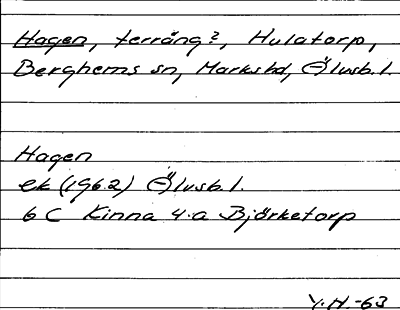 Hagen, terräng?, Hulatorp,
Berghems sn, Markshd, Älvsb. l.
Hagen
ek (1962) Älvsb. l.
6 C Kinna 4.a Björketorp
Y.H.-63